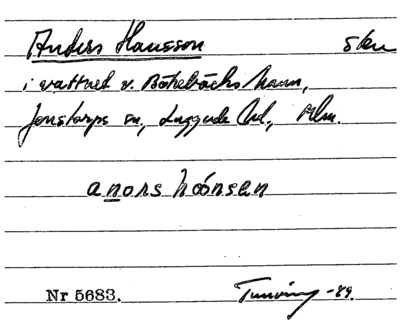 Anders Hansson Sku
i vattnet v. Bökebäcks hamn,
Jonstorps sn, Luggude hd., Mlm.
anors hånsen
Nr 5683. Tunving -89.